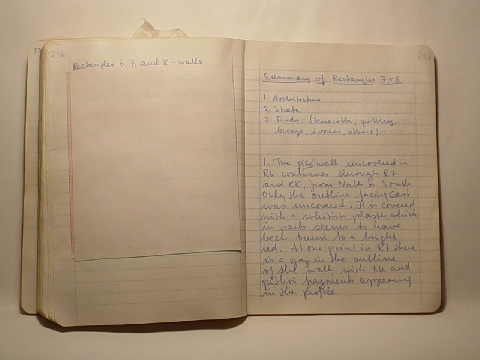 256
Rectangles 6, 7, and 8 - walls
257
Summary of Rectangles 7 & 8
1. Architecture
2. Strata
3. Finds (terracotta, pottery,
bronze, ivories, others)
1. The wall uncovered in
R6 continues through R7
and R8, from North to South
Only the outline facing East
was uncovered. It is covered
with a whitish plaster which
in parts seems to have
been burnt to a bright
red. At one point in R7 there
is a gap in the outline
of the wall with the and
fragments appearing
in the